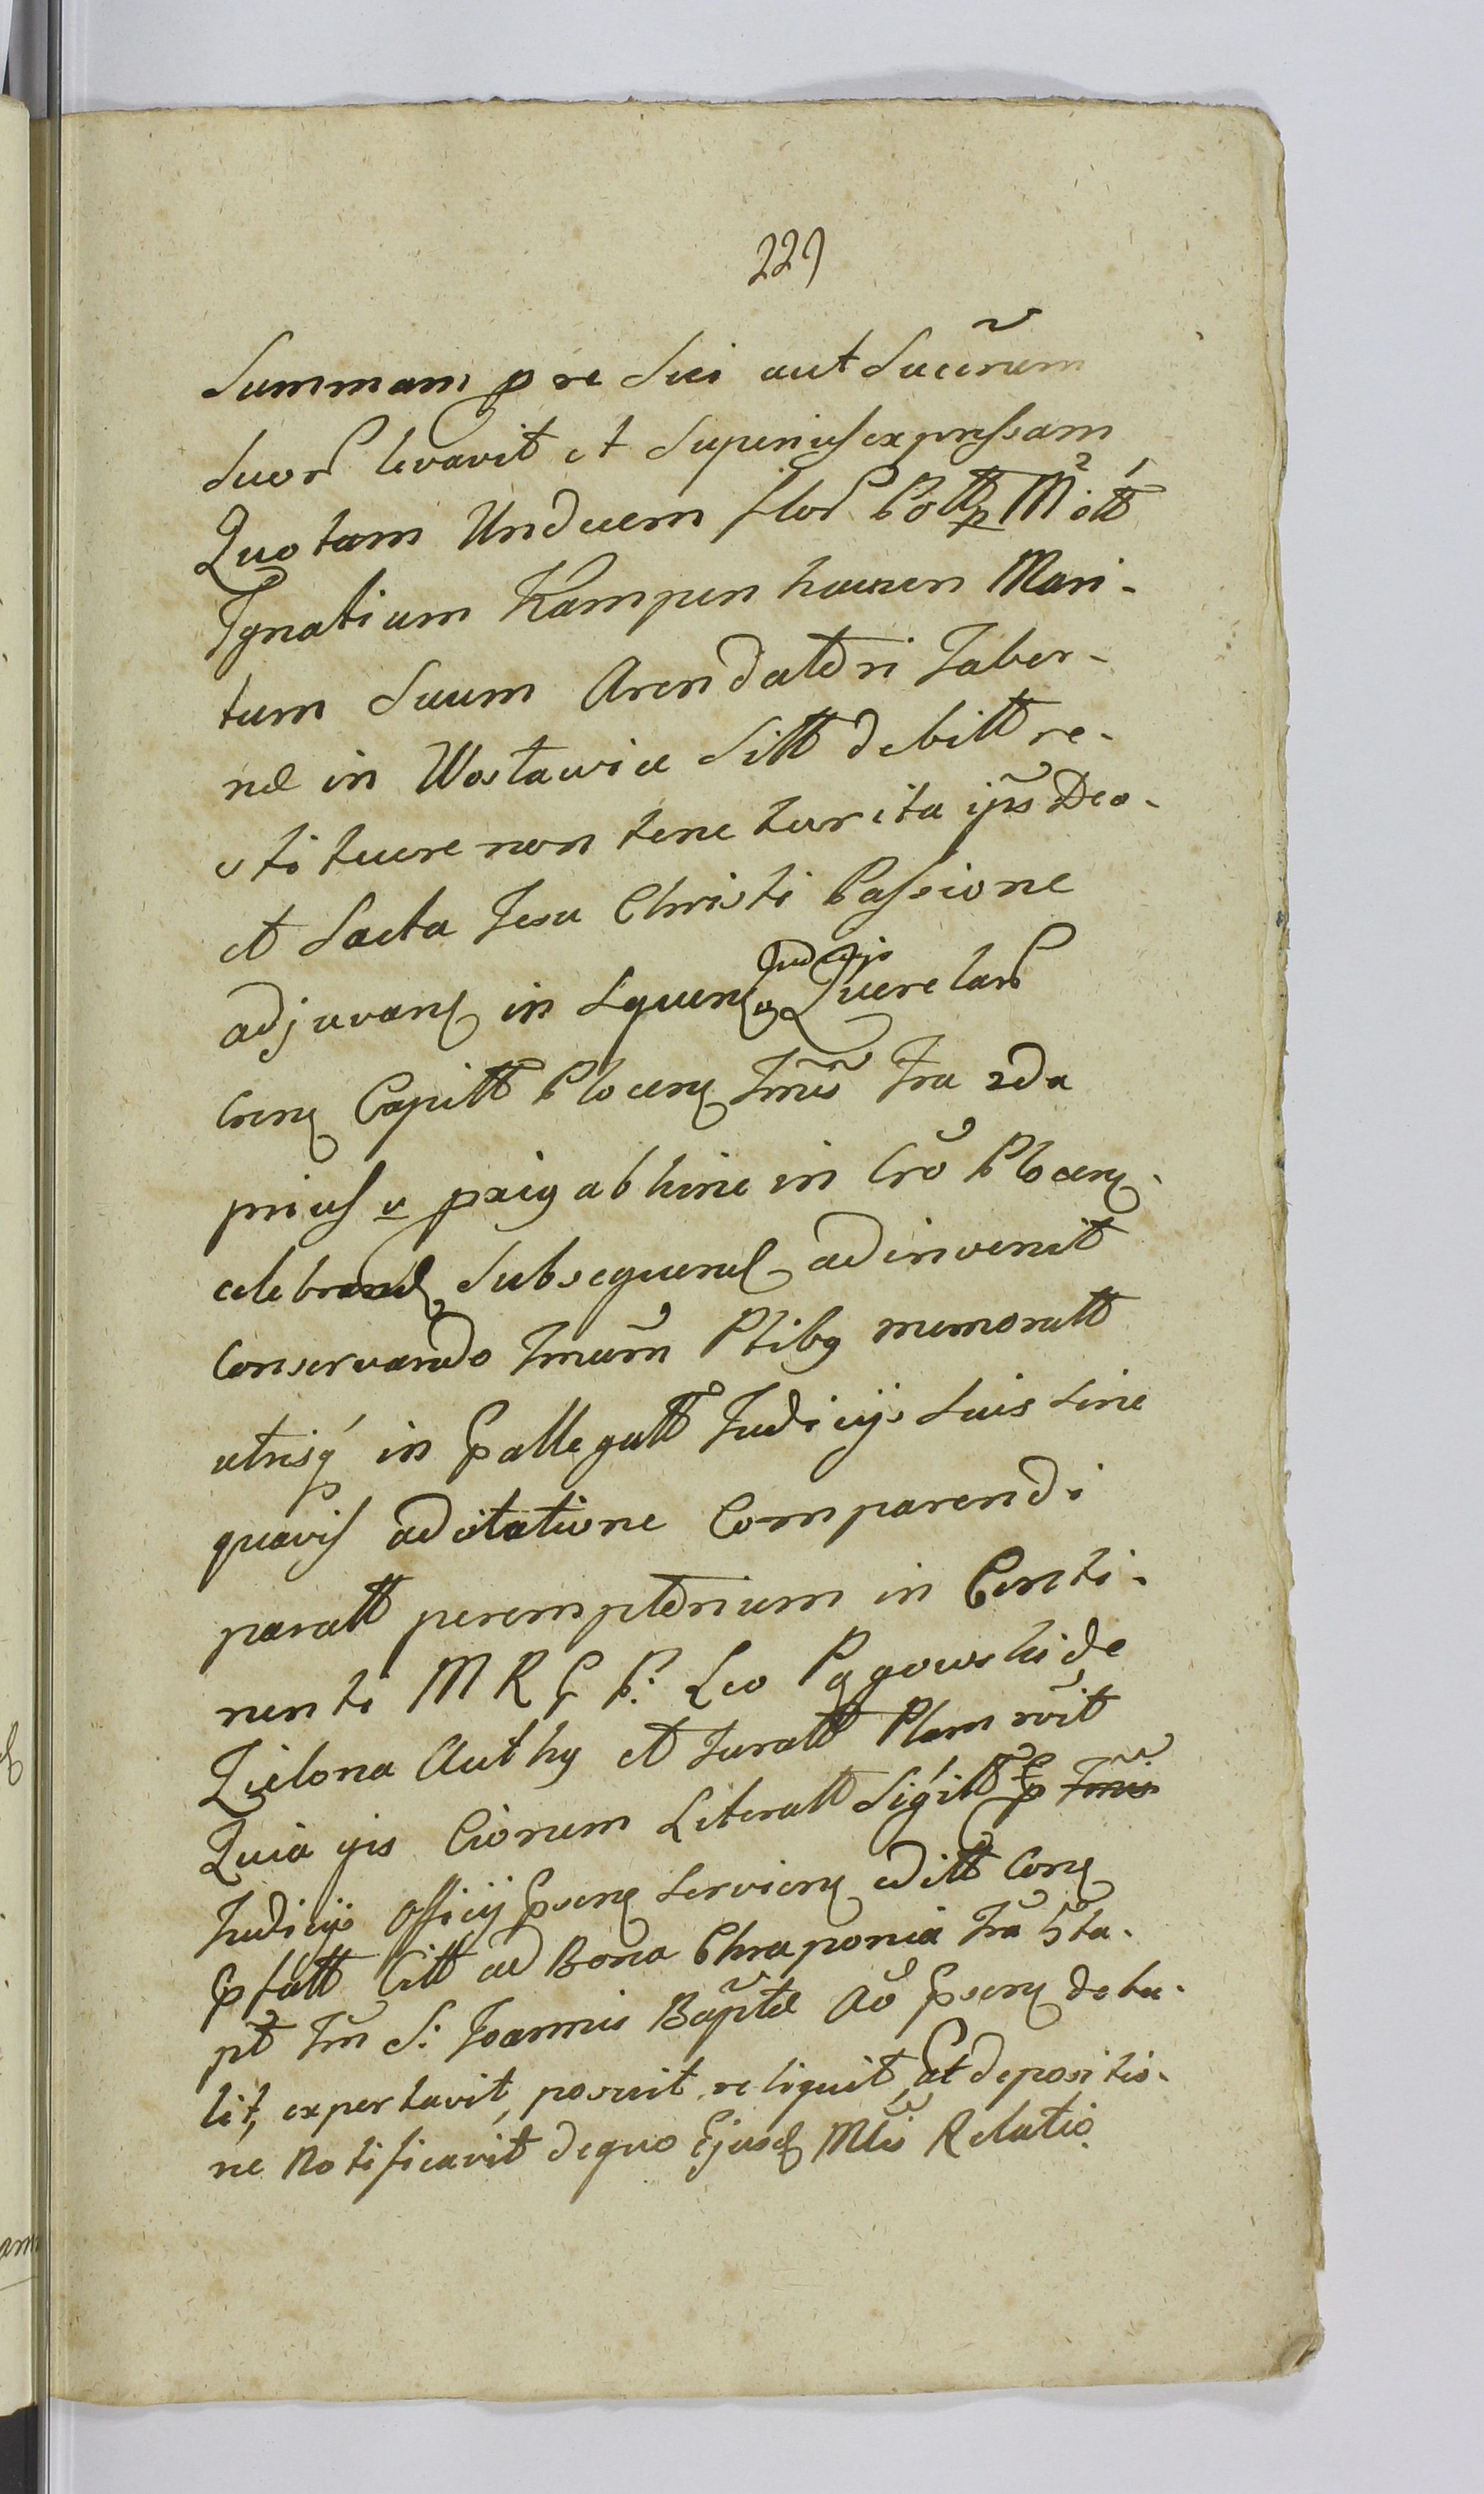 229
Summam pre Sui aut Sucrum
Suor levavit et Superius expressam
Quotam Undecem flor Poll p Mott
Ignatium Kampenhauzen Mari-
tum Suum Arendatori Taber-
nae in Wostawica Sitt debitt re-
stituere non tenetur ita ips Deo
et Sacta Jesu Christi Passione
adjuvan in Sequen Judicijs Querelar
Cren Capitt Plocen Tmis Fra 2da
prius u paig ab hinc in Cro Plocen
celebrand Subsequend adinvenit
Conservando Tmum Ptibg memoratt
utrisq in pallegatt Judicijs Suis Sine
quavis adcitatione Comparendi
paratt peremptorium in Conti-
nenti M R G P: Leo Pggowski de
Zielona Authy et Juratt Plem roit
Quia gis Ciorum Literatt Sigitt p Tmis
Judicijs Officij psen Servien editt Con
pfatt Citt ad Bona Chraponia Fra 5ta
pt Tm S: Joannis Baptae Ao psen detu-
lit, exportavit, posuit reliquit, et depositio-
ne Notificavit de quo Ejusd Mlis Relatio